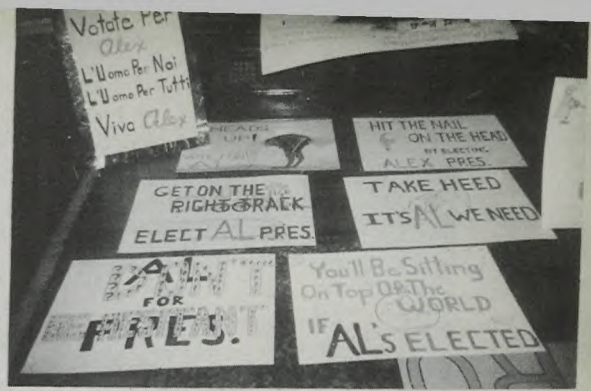 Votate Per
Alex
L'Uomo Per Noi
L'Uomo Per Tutti
Viva Alex
HEADS
UP!
HIT THE NAIL
ON THE HEAD
BY ELECTING
ALEX PRES.
GET ON THE
RIGHT TRACK
ELECT AL PRES.
TAKE HEED
IT'S AL WE NEED
AL
FOR
PRES.
You'll Be Sitting
On Top Of The
WORLD
IF AL'S ELECTED